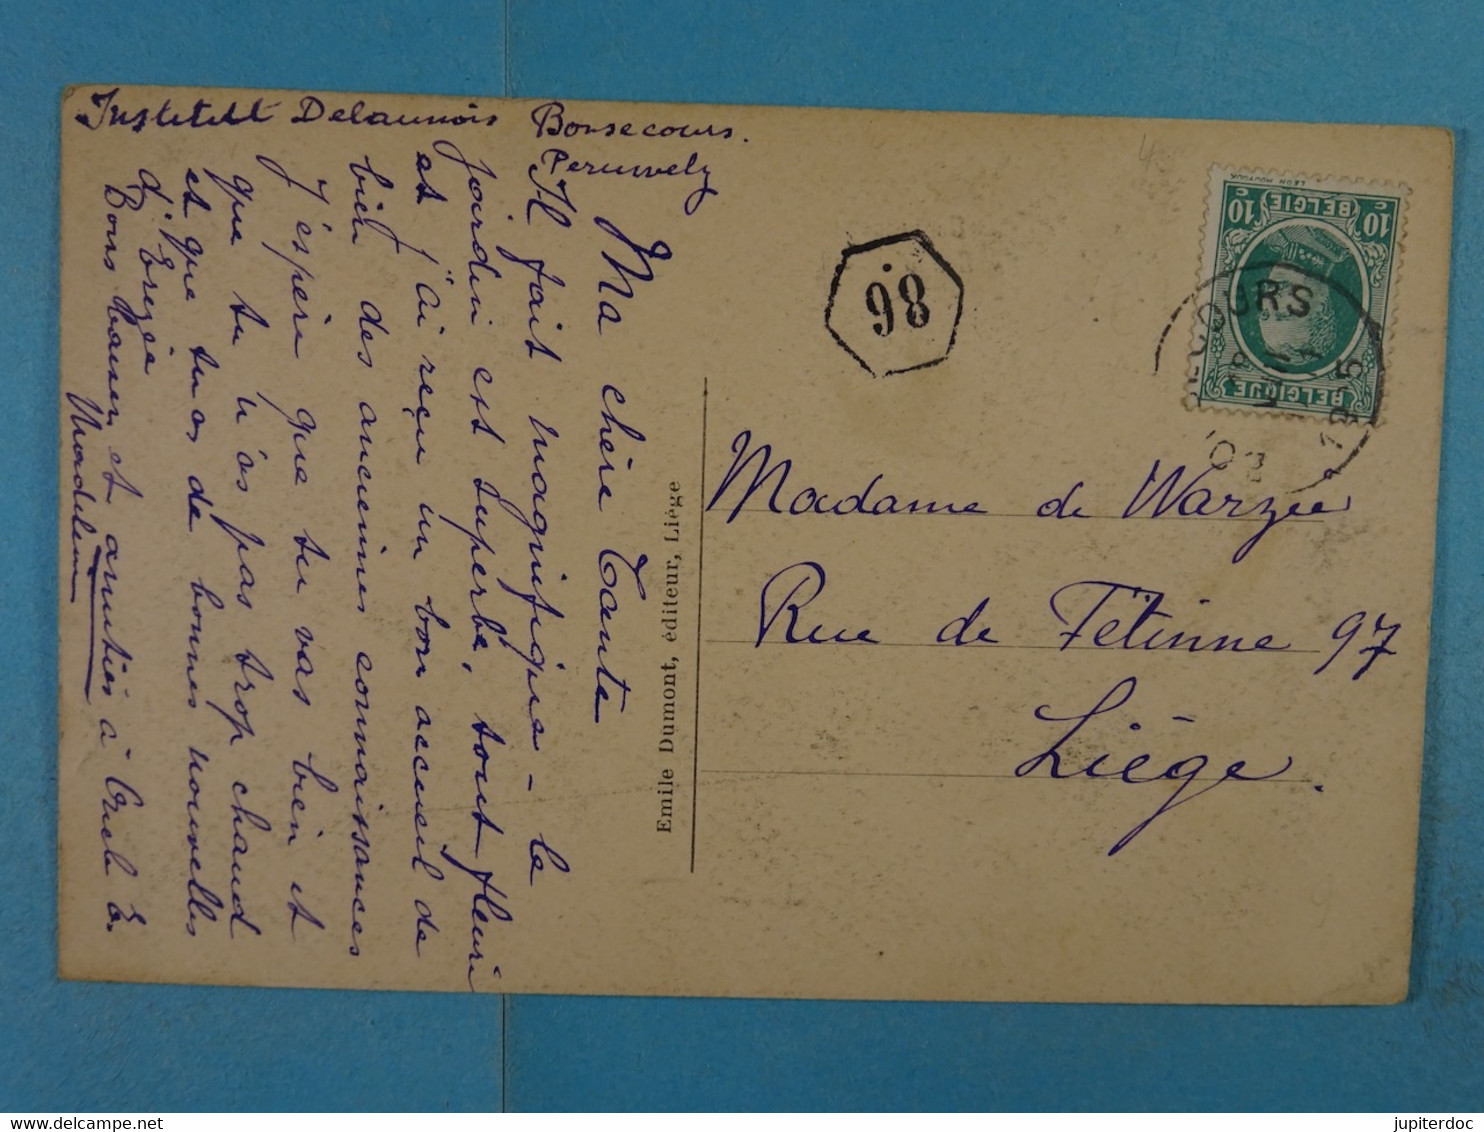 Institut Delaunois Bonsecours.
Peruwelz
Ma chère Tante
Il fait magnifique - le
jardin est superbe, tout fleuri
et j'ai reçu un bon accueil de
bien des anciennes connaissances
J'espère que tu vas bien et
que tu n'as pas trop chaud
et que tu as de bonnes nouvelles
d'Erezée
Bons baisers et amitiés à
Madeleine
Emile Dumont, éditeur, Liége
98
LEON HOUYOUX
10 c BELGIE 10 c
BELGIQUE
Madame de Warzée
Rue de Fétinne 97
Liège.
jupiterdoc
delcampe.net